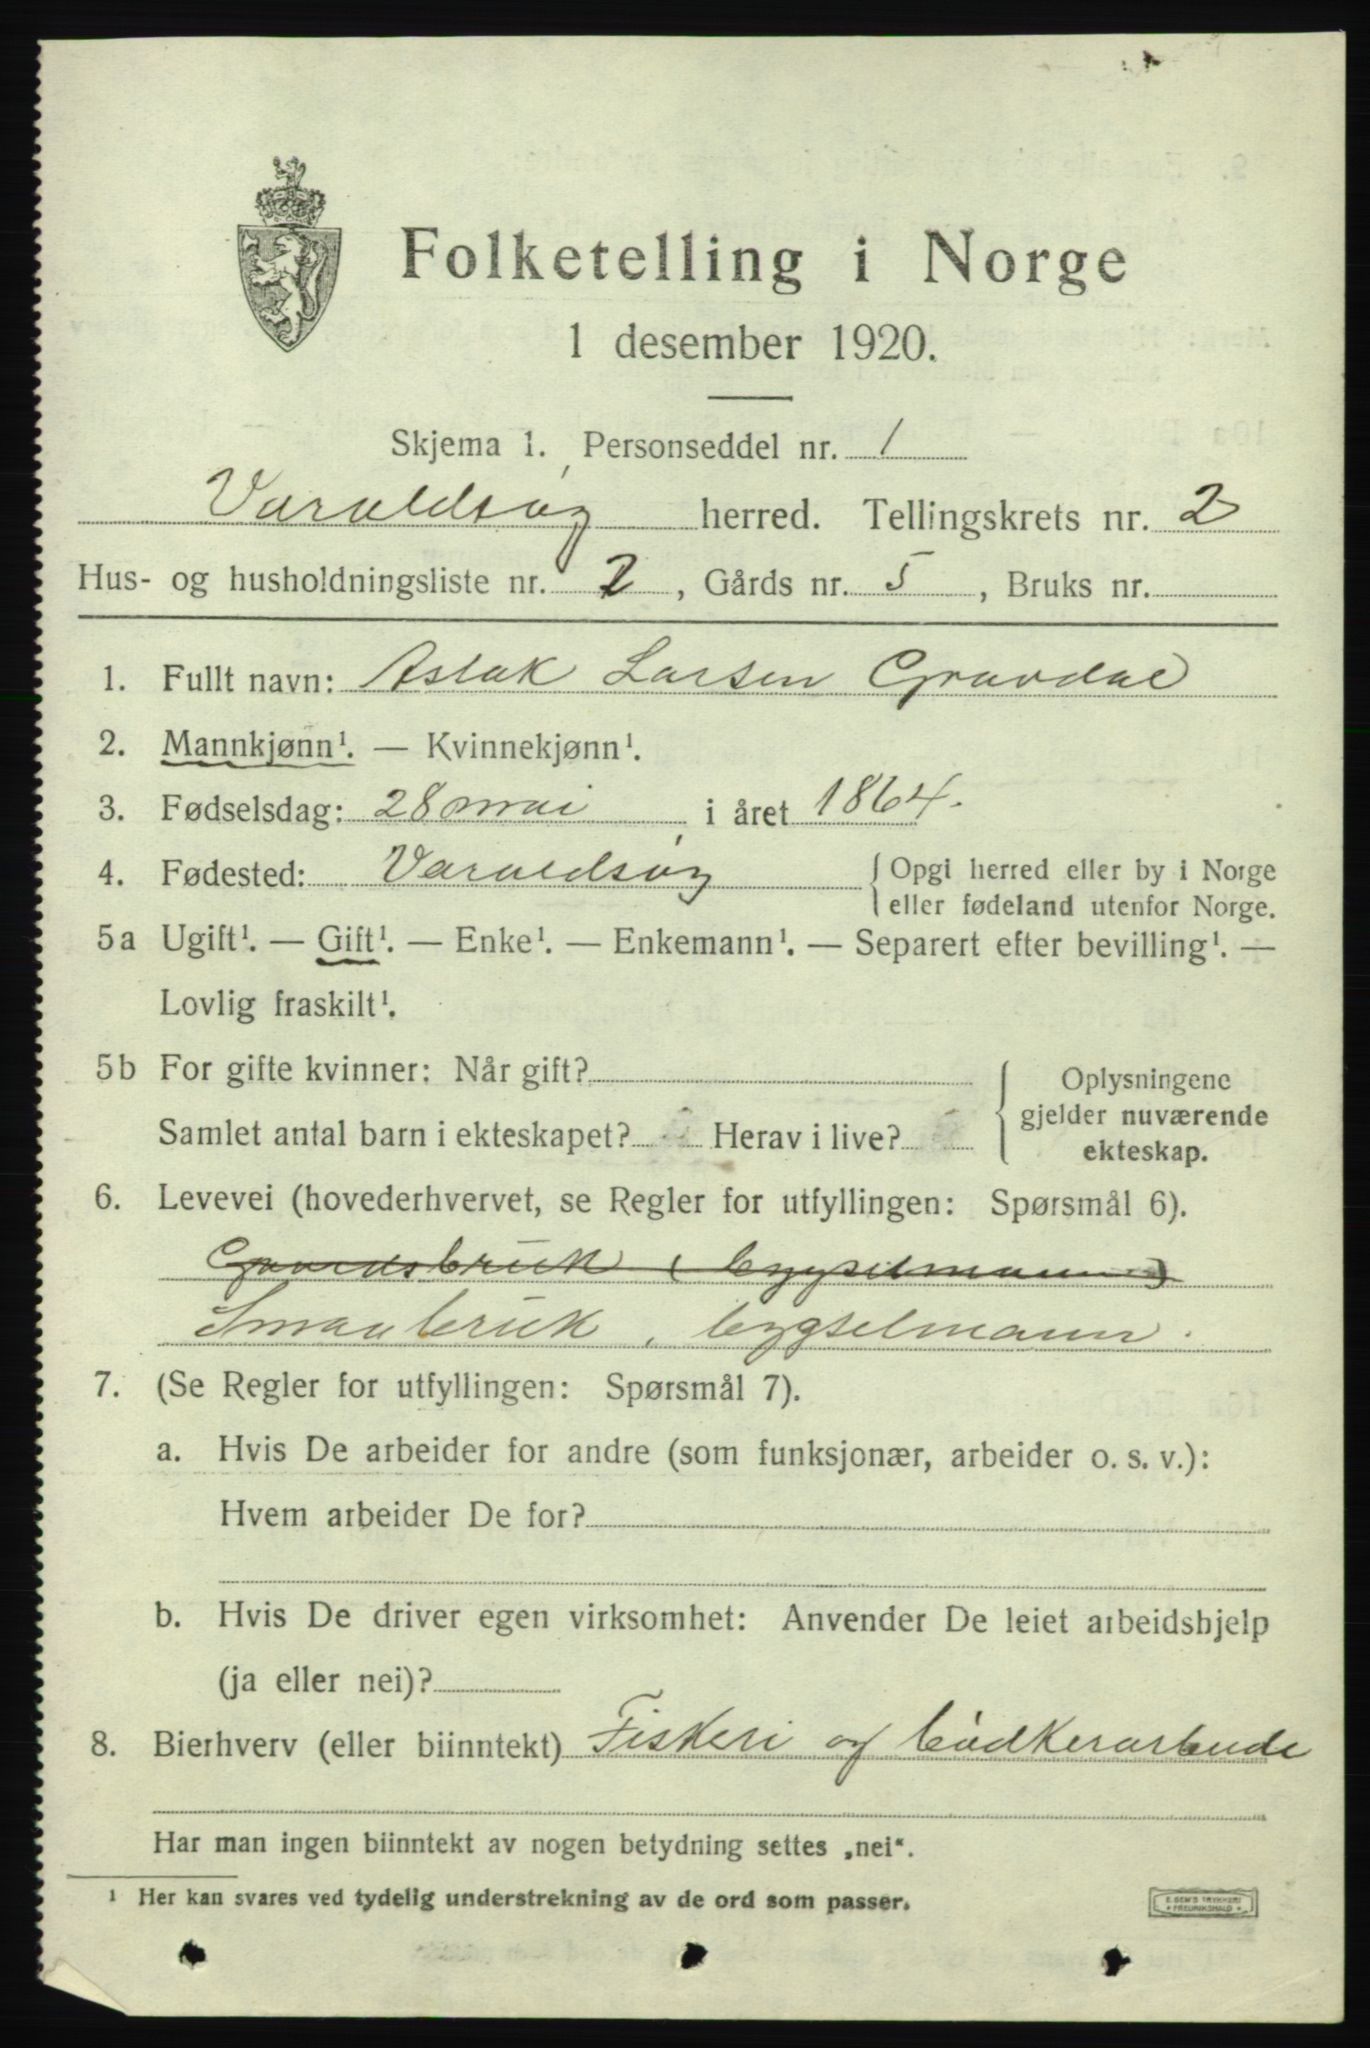 Folketelling i Norge
1 desember 1920.
Skjema 1. Personseddel nr. 1
Varaldsøy herred. Tellingskrets nr. 2
Hus- og husholdningsliste nr. 2, Gårds nr. 5, Bruks nr.
1. Fullt navn: Aslak Larsen Gravdal
2. Mannkjønn¹. — Kvinnekjønn¹.
3. Fødselsdag: 28 mai i året 1864.
4. Fødested: Varaldsøy { Opgi herred eller by i Norge
eller fødeland utenfor Norge.
5a Ugift¹. — Gift¹. — Enke¹. — Enkemann¹. — Separert efter bevilling¹. —
Lovlig fraskilt¹.
5b For gifte kvinner: Når gift?
Samlet antal barn i ekteskapet? Herav i live?
{ Oplysningene
gjelder nuværende
ekteskap.
6. Levevei (hovederhvervet, se Regler for utfyllingen: Spørsmål 6).
Gaardsbruk (bygselmann)
Smaabruk, bygselmann.
7. (Se Regler for utfyllingen: Spørsmål 7).
a. Hvis De arbeider for andre (som funksjonær, arbeider o. s. v.):
Hvem arbeider De for?
b. Hvis De driver egen virksomhet: Anvender De leiet arbeidshjelp
(ja eller nei)?
8. Bierhverv (eller biinntekt) Fiskeri og bödkerarbeide
Har man ingen biinntekt av nogen betydning settes „nei“.
¹ Her kan svares ved tydelig understrekning av de ord som passer.
E. SEM'S TRYKKERI
FREDRIKSHALD